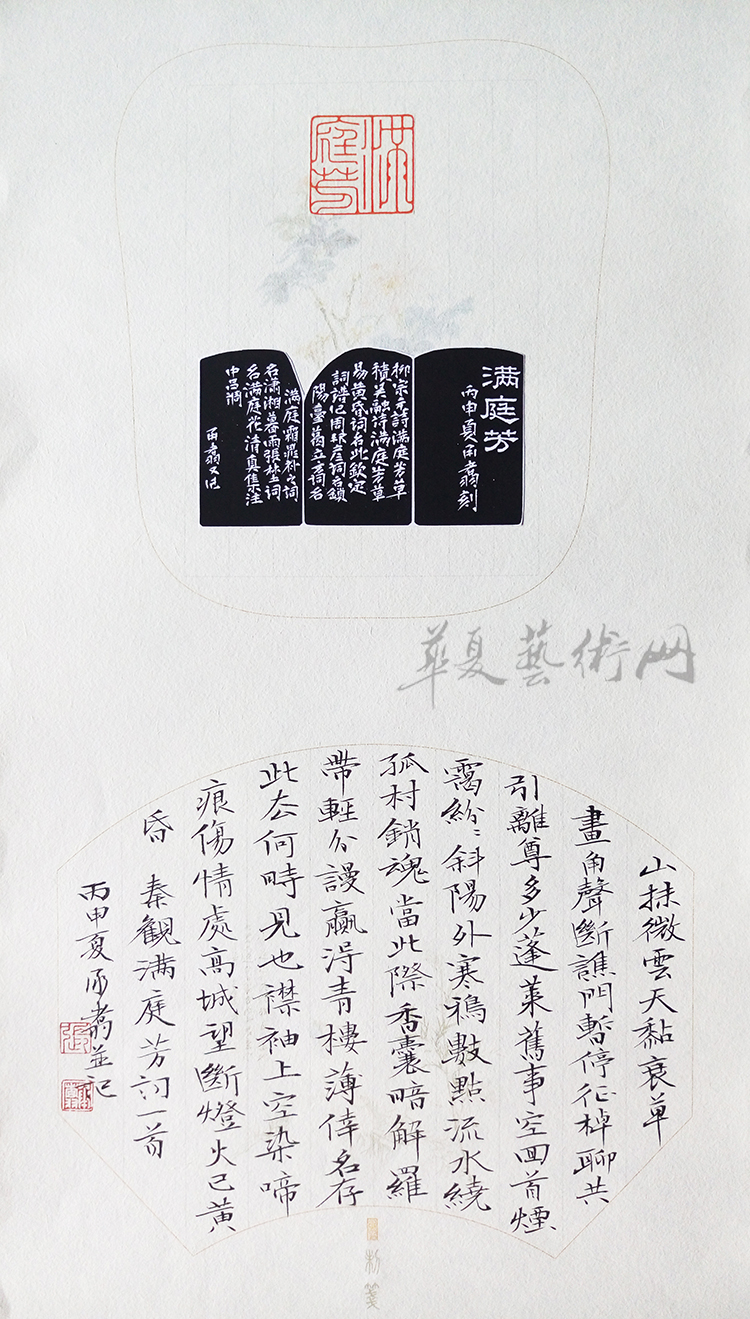 滿庭芳
满庭芳
丙申夏雨翥刻
柳宗元詩满庭芳草
積吴融詩满庭芳草
易黄昏词名此欽定
詞譜记周邦彦词名鎖
陽臺葛立方词名
满庭霜晁補之词
名瀟湘暮雨張埜词
名满庭花清真集注
中吕调
雨翥又记
華夏藝術网
山抹微雲天黏衰草
畫角聲斷譙門暫停征棹聊共
引離尊多少蓬萊舊事空回首煙
靄紛〻斜陽外寒鴉數點流水繞
孤村銷魂當此際香囊暗解羅
帶輕分謾贏得青樓薄倖名存
此去何時見也襟袖上空染啼
痕傷情處高城望斷燈火已黃
昏 秦觀满庭芳词一首
丙申夏雨翥並记
制箋